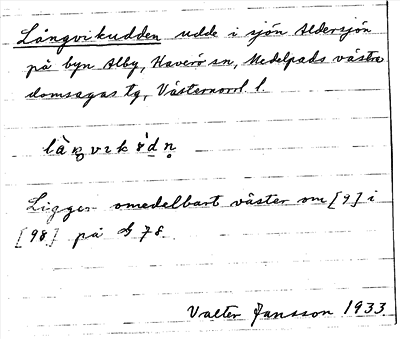 Långvikudden udde i sjön Aldersjön
på byn Alby, Haverö sn, Medelpads västra
domsagas tg, Västernorrl. l.
Ligger omedelbart väster om [9] i
[98] på 78.
Valter Jansson 1933.